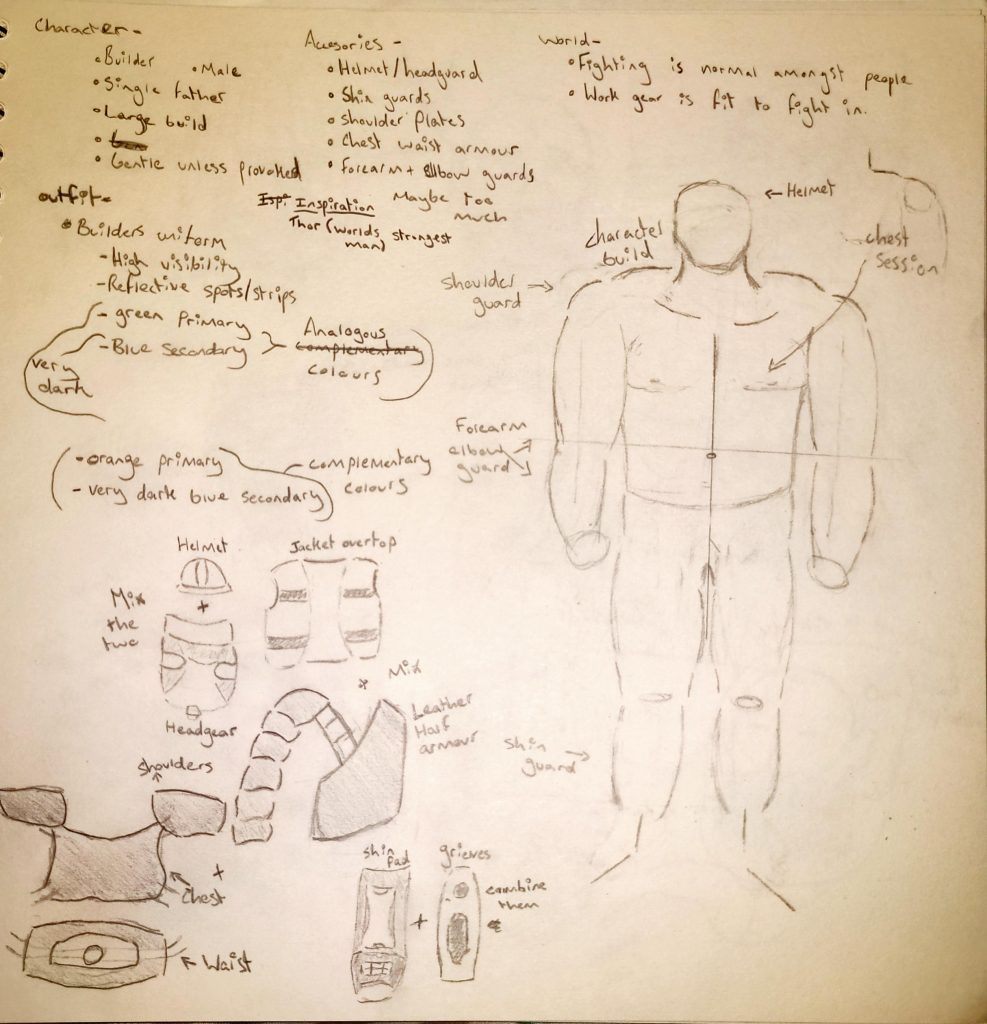 Character-
• Builder • Male
• Single father
• Large build
•
• Gentle unless provoked
Accesories -
• Helmet/headguard
• Shin guards
• Shoulder Plates
• Chest waist armour
• Forearm + Elbow guards
Maybe too
much
World-
• Fighting is normal amongst people
• Work gear is fit to fight in.
Outfit-
• Builders uniform
- High visibility
- Reflective spots/strips
- green Primary
- Blue Secondary
very
dark
Analogous
complementary
colours
Inspiration
Thor (worlds strongest
man)
- orange primary
- very dark blue secondary
complementary
colours
character
build
← Helmet
chest
session
shoulder
guard →
Forearm
elbow
guard
shin
guard →
Helmet
+
Mix
the
two
Headgear
Jacket overtop
+ Mix
Leather
Half
armour
shoulders
+
Chest
← Waist
shin
pad
+
grieves
combine
them